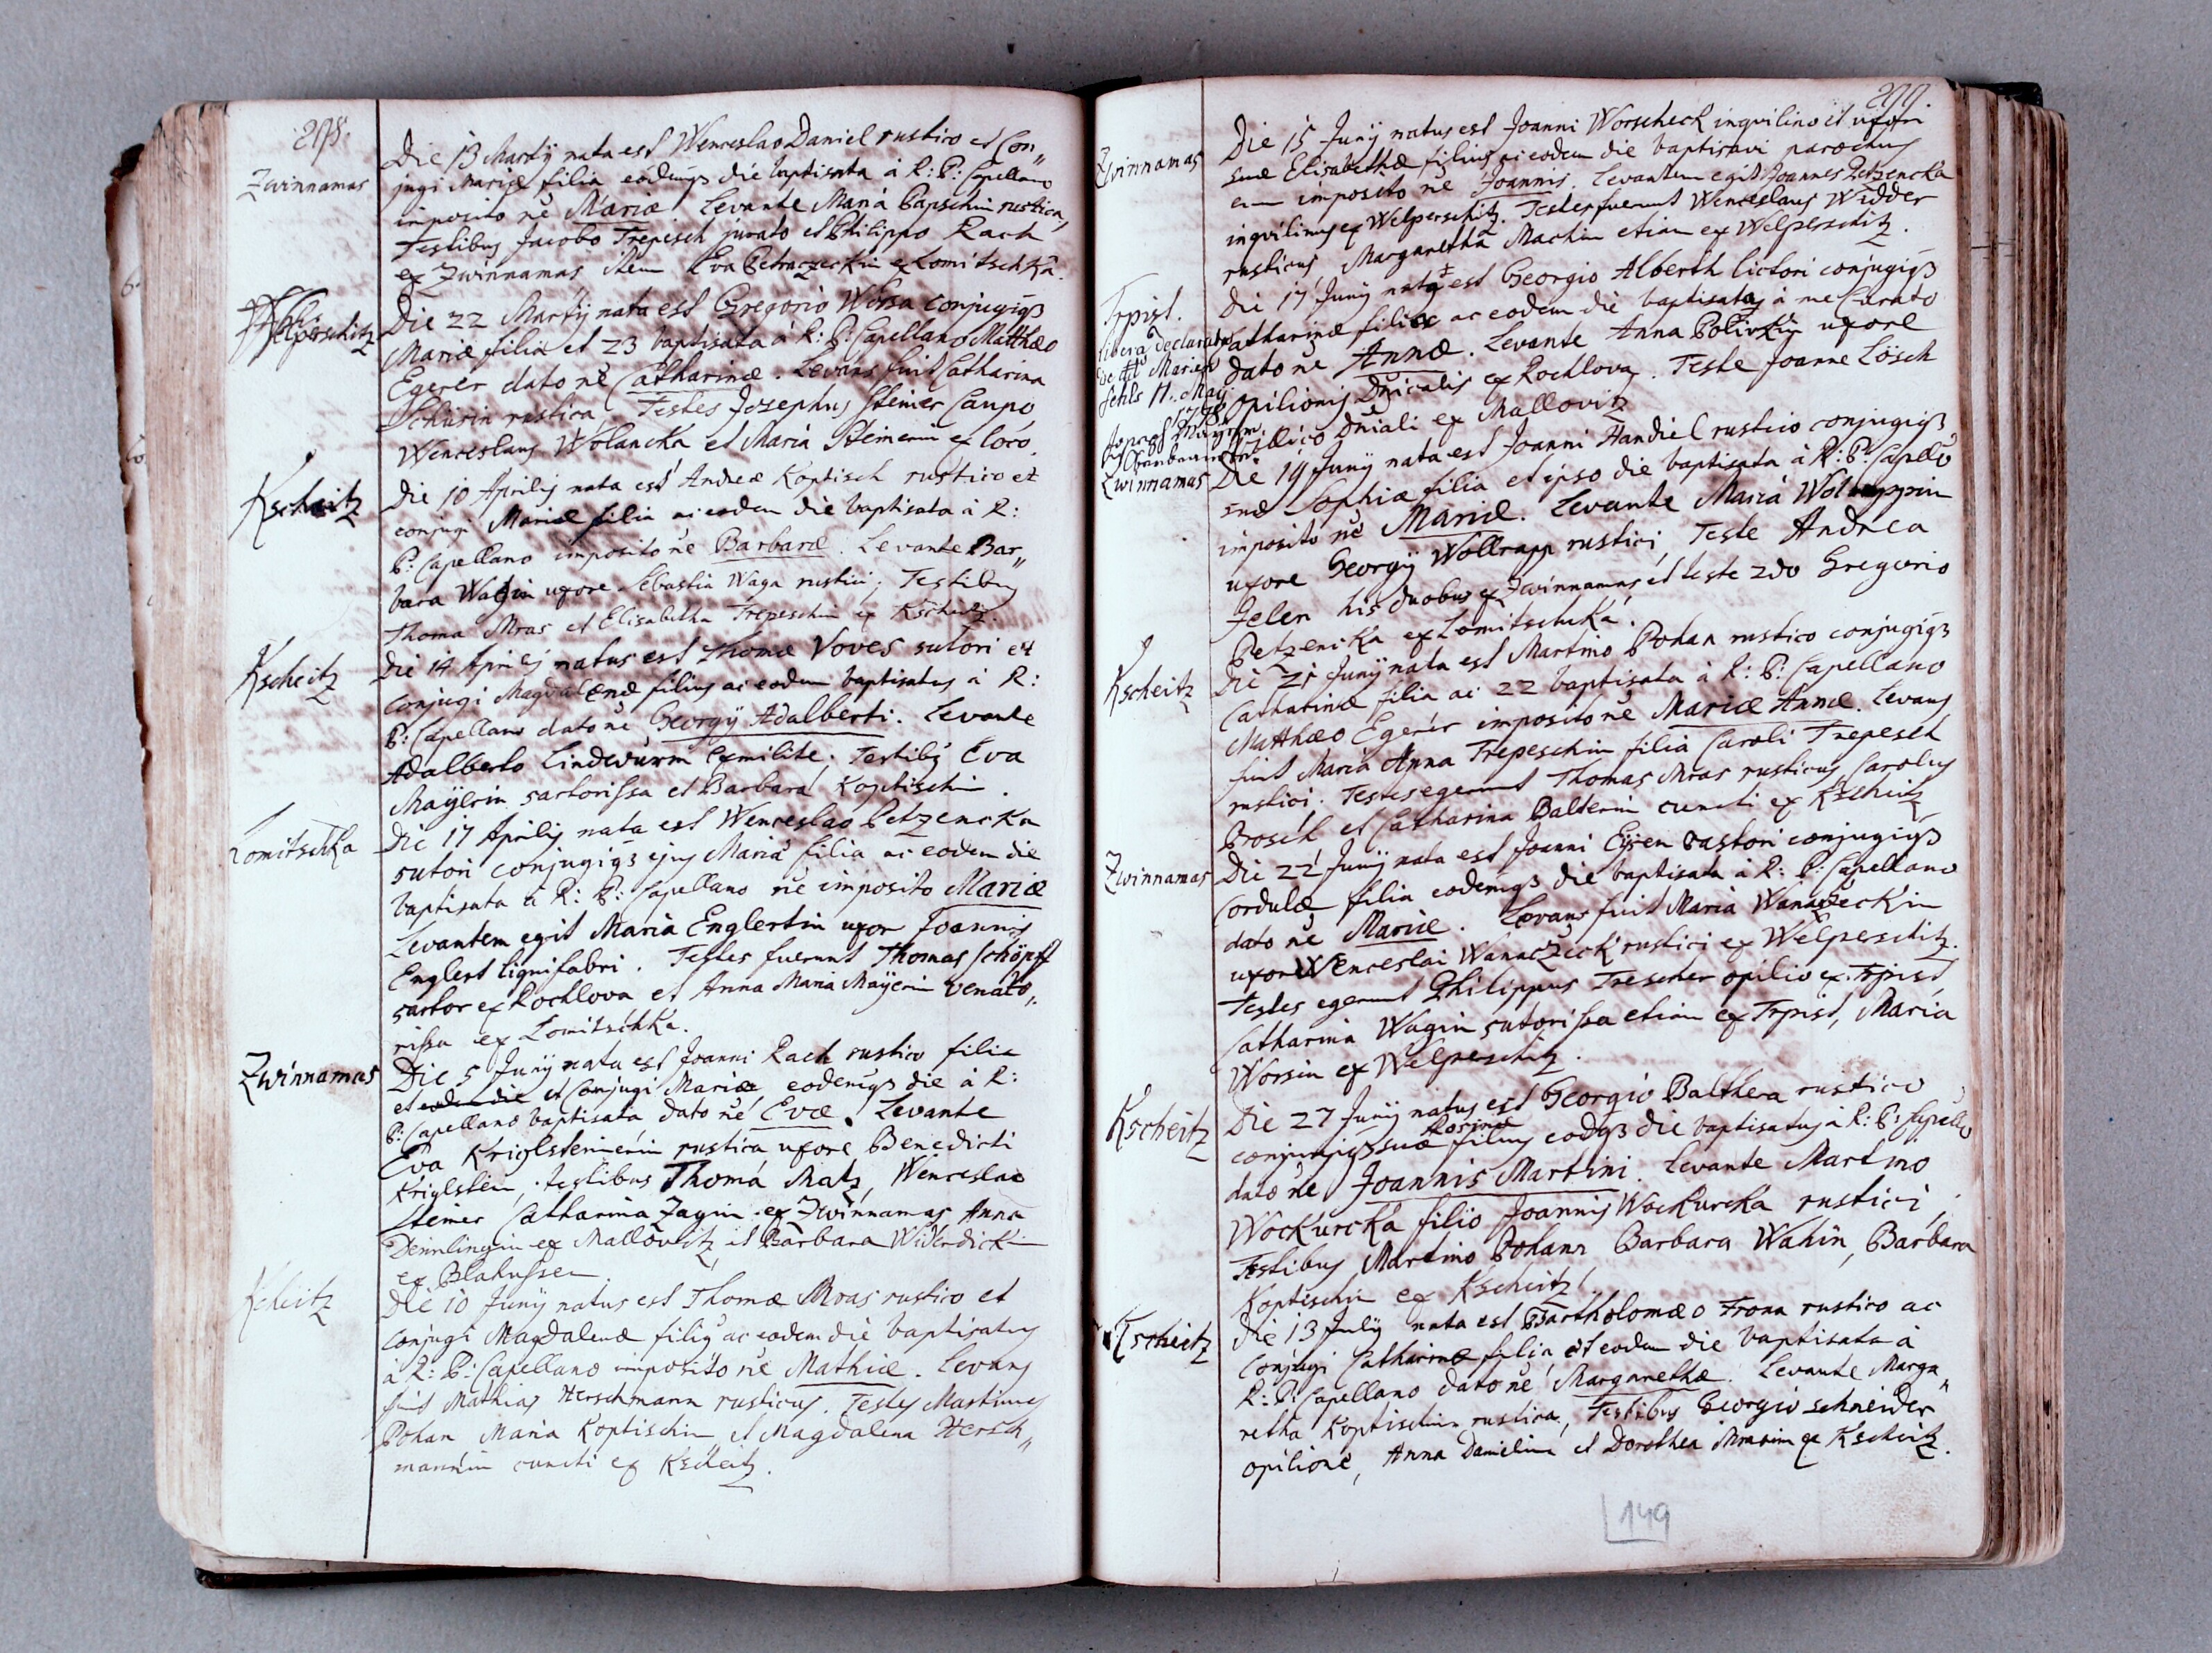 298.
Zwinnamas
Die 13 Martÿ nata est Wenceslao Daniel rustico et Con„
jugi Mariæ filia eodemqz die baptisata à R: P: Capellano
imposito nē Mariæ. Levante Maria Papschin rustica,
Testibus Jacobo Trepesch jurato et Philippo Rach
ex Zwinnamas item Eva Petraczeckin ex Lomitschka.
Welperschitz
Die 22 Martÿ nata est Gregorio Worsa conjugiqz
Mariæ filia et 23 baptisata à R: P: Capellano Matthæo
Egerer dato nē Catharinæ. Levans fuit Catharina
rustica. Testes Josephus Steiner Caupo
Wenceslaus Wolancka et Maria Steinerin ex loco.
Kscheitz
Die 10 Aprilis nata est Andreæ Koptisch rustico et
conjugi Mariæ filia ac eodem die baptisata à R:
P: Capellano imposito nē Barbaræ. Levante Bar„
bara Wagin uxore Sebastia Waga rustici, Testibus
Thoma Mras et Elisabetha Trepeschin ex Kscheitz.
Kscheitz
Die 14 Aprilis natus est Thomæ Voves sutori et
conjugi Magdalenæ filius ac eodem baptisatus à R:
P: Capellano dato nē Georgÿ Adalberti. Levante
Adalberto Lindwurm exmilite. Testibus Eva
Maÿerin sartorissa et Barbara Koptischin.
Lomitschka
Die 17 Aprilis nata est Wenceslao Petzencka
sutori conjugiqz ejus Maria filia ac eodem die
baptisata à R: P: Capellano nē imposito Mariæ
Levantem egit Maria Englertin uxor Joannis
Englert lignifabri. Testes fuerunt Thomas Schöpff
sartor ex Rochlova et Anna Maria Maÿerin venato„
rissa ex Lomitschka.
Zwinnamas
Die 5 Junÿ nata est Joanni Rach rustico filia
et eodem die et Conjugi Mariæ eodemqz die à R:
P: Capellano baptisata dato nē Evæ. Levante
Eva Kriglsteinerin rustica uxore Benedicti
Kriglstein, testibus Thoma Matz, Wenceslao
Steiner Catharina Zagin ex Zwinnamas Anna
Deimlingin ex Mallowitz et Barbara Widerdickin
ex Blahussen
Kscheitz
Die 10 Junÿ natus est Thomæ Mras rustico et
conjugi Magdalenæ filius ac eodem die baptisatus
à R: P: Capellano imposito nē Mathiæ. Levans
fuit Mathias Herschmann rusticus. Testes Martinus
Pohan Maria Koptischin et Magdalena Hersch„
mannin cuncti ex Kscheitz.
299.
Zwinnamas
Die 15 Junÿ natus est Joanni Worscheck inquilino et uxori
suæ Elisabethæ filius ac eodem die baptisavi parochus
eum imposito nē Joannis. Levantem egit Joannes Petzencka
inquilinus ex Welperschitz. Testes fuerunt Wenceslaus Widder
rusticus, Margaretha Machin etiam ex Welperschitz.
Trpist.
libera declarata
Die 17 Junÿ nata est Georgio Alberth lictori conjugiqz
Catharinæ filiæ ac eodem die baptisata à me Curato
dato nē Annæ. Levante Anna Polivkin uxore
opilionis Dnicalis ex Rochlova. Teste Joanne Lösch
villico dniali ex Mallovitz
Zwinnamas
Die 19 Junÿ nata est Joanni Handiel rustico conjugiqz
suæ Sophiæ filia et ipso die baptisata à R: P: Capello
imposito nē Mariæ. Levante Maria Wolrappin
uxore Georgÿ Wollrapp rustici, Teste Andrea
Jelen his duobus ex Zwinnamas et teste 2do Gregorio
Petzencka ex Lomitschka.
Kscheitz
Die 21 Junÿ nata est Martino Pohan rustico conjugiqz
Catharinæ filia ac 22 baptisata à R: P: Capellano
Matthæo Egerer imposito nē Mariæ Annæ. Levans
fuit Maria Anna Trepeschin filia Caroli Trepesch
rustici. Testes egerunt Thomas Mras rusticus, Carolus
Brosch et Catharina Balterin cuncti ex Kscheitz
Zwinnamas
Die 22 Junÿ nata est Joanni Eÿsen pastori conjugiqz
Cordulæ filia eodemqz die baptisata à R: P: Capellano
dato nē Mariæ. Levans fuit Maria Wanaczeckin
uxor Wenceslai Wanaczeck rustici ex Welperschitz.
Testes egerunt Philippus Trescher opilio ex Trpist
Catharina Wagin sutorissa etiam ex Trpist, Maria
Worsin ex Welperschitz.
Kscheitz
Die 27 Junÿ natus est Georgio Balthera rustico
conjugiqz suæ Rosinæ filius eodqz die baptisatus à R: P: Capello
dato nē Joannis Martini. Levante Martino
Wockurcka filio Joannis Wockurcka rustici,
Testibus Martino Pohan, Barbara Wahin, Barbara
Koptischin ex Kscheitz.
Kscheitz
Die 13 Julÿ nata est Bartholomæo Frona rustico ac
conjugi Catharinæ filia et eodem die baptisata à
R: P: Capellano dato nē Margarethæ. Levante Marga„
retha Koptischin rustica, Testibus Georgio Schneider
opilione, Anna Danielin et Dorothea Mrasin ex Kscheitz.
149